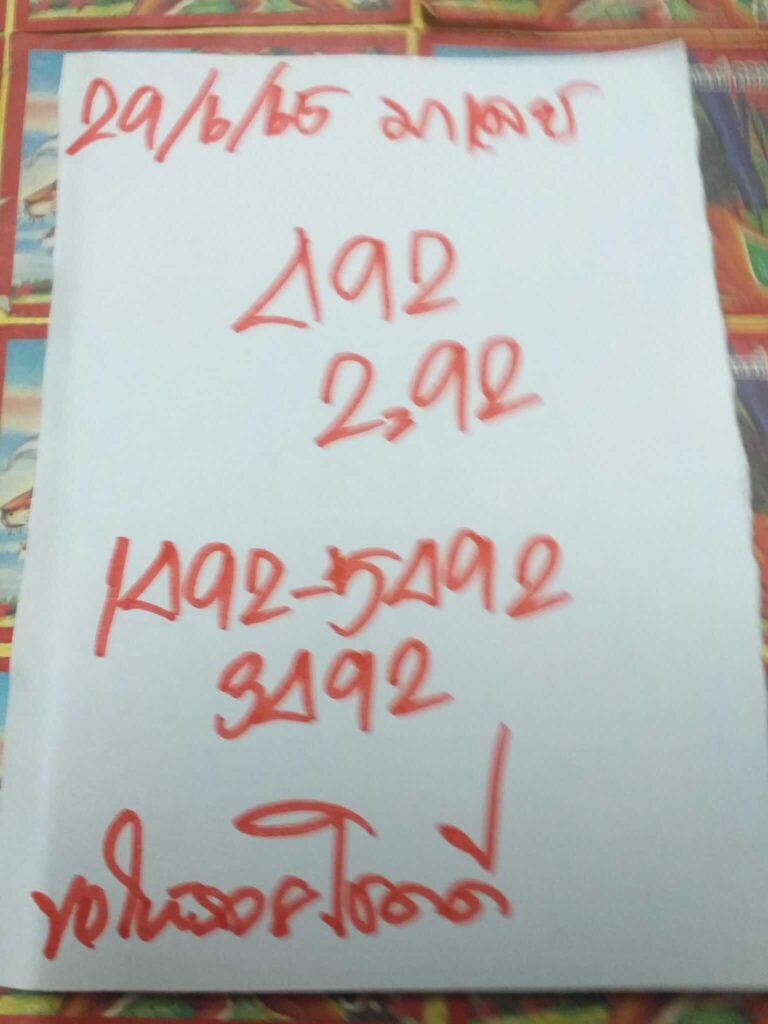 29/6/65 มาเลย์
492
2,92
1492-5492
3492
ขอให้รวยโชคดี